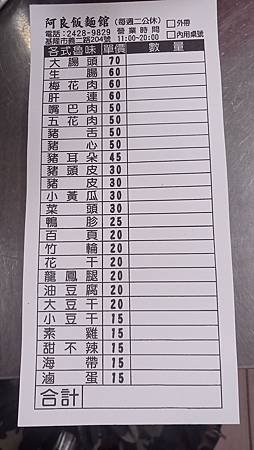 阿良飯麵館 (每週二公休) □外帶
電話:2428-9829 營業時間
基隆市義一路204號 11:00~20:00 □內用桌號
各式魯味 單價 數量
大腸頭 70
生腸 60
梅花肉 60
肝連 60
嘴巴肉 50
五花肉 50
豬舌 50
豬心 50
豬耳朵 45
豬頭皮 30
豬皮 30
小黃瓜 30
菜頭 30
鴨胗 25
百頁 20
竹輪 20
花干 20
龍鳳腿 20
油豆腐 20
大豆干 20
小豆干 15
素雞 15
甜不辣 15
海帶 15
滷蛋 15
合計